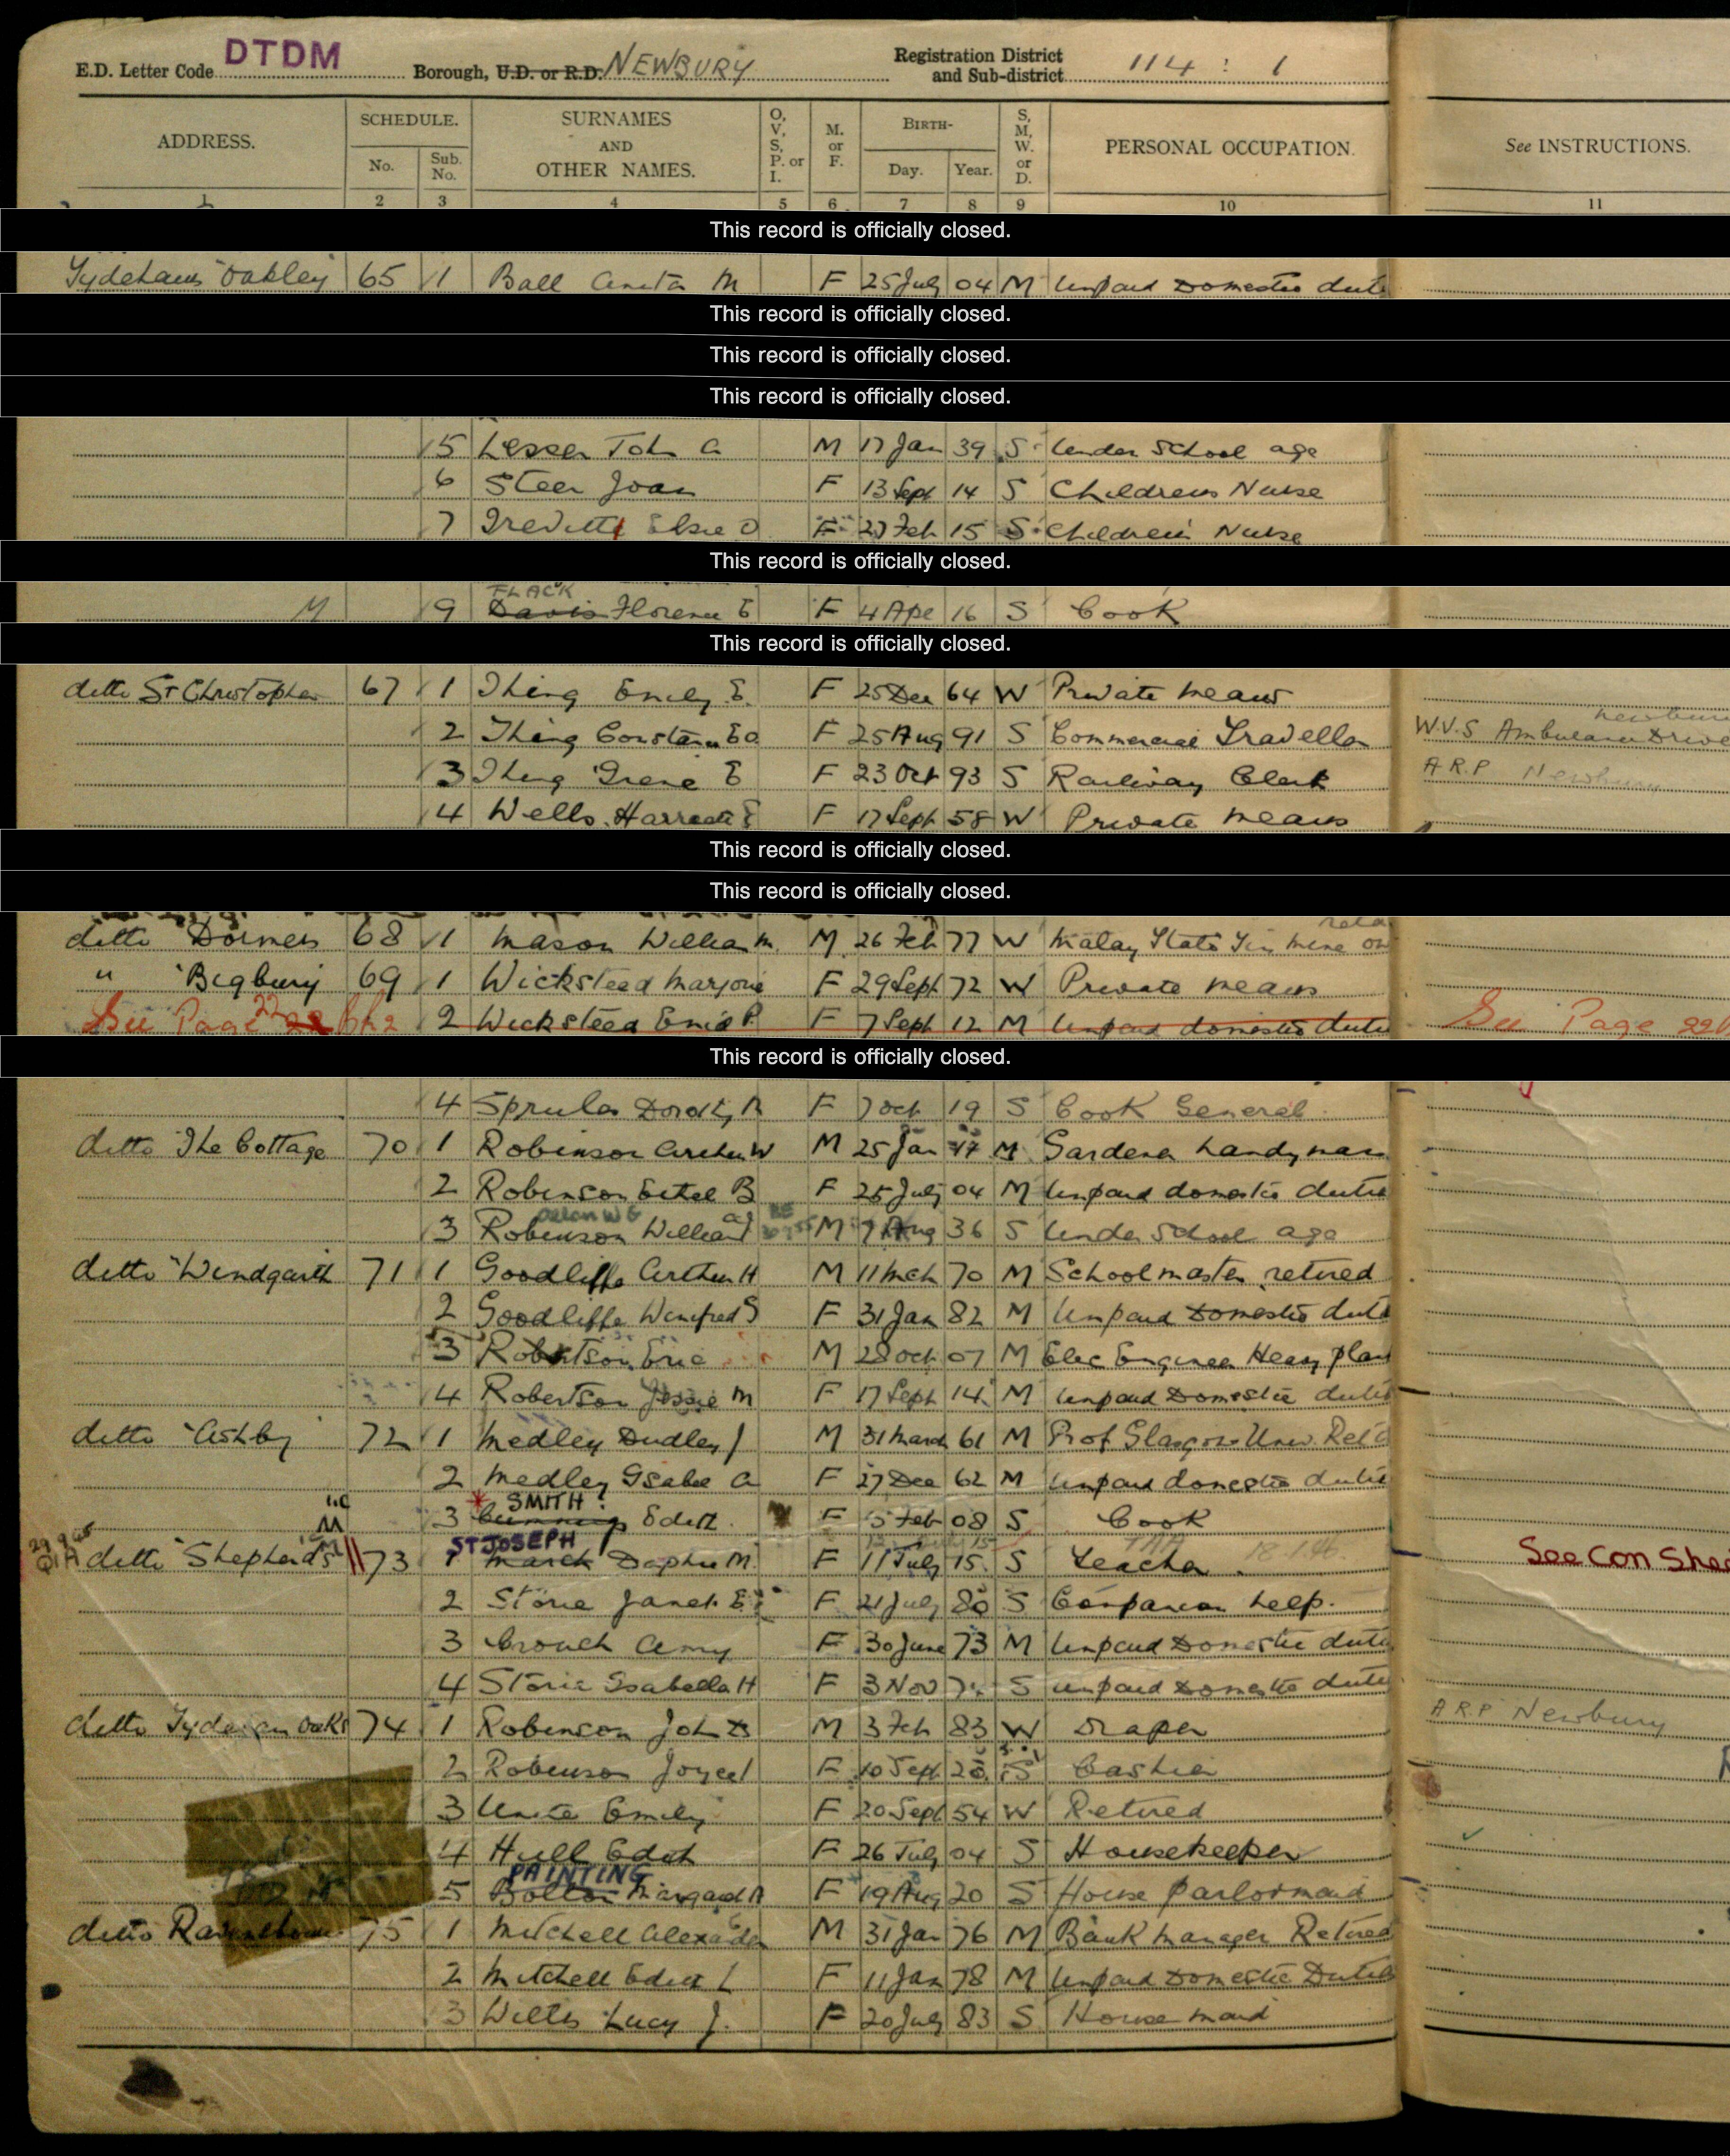 E.D. Letter Code DTDM Borough, U.D. or R.D. NEWBURY Registration District and Sub-district 114 : 1
ADDRESS. SCHEDULE. No. Sub. No. SURNAMES AND OTHER NAMES. O, V, S, P. or I. M. or F. BIRTH- Day. Year. S, M, W. or D. PERSONAL OCCUPATION. See INSTRUCTIONS.
1 2 3 4 5 6 7 8 9 10 11
This record is officially closed.
Oakley 65 1 Ball Anita M F 25 July 04 M Unpaid Domestic duti
This record is officially closed.
This record is officially closed.
This record is officially closed.
5 Lesser John A M 17 Jan 39 S Under School age
6 Steer Joan F 13 Sept 14 S Childrens Nurse
7 Trevitt Elsie O F 27 Feb 15 S Children's Nurse
This record is officially closed.
FLACK
M 9 Davis Florence E F 4 Apr 16 S Cook
This record is officially closed.
ditto St Christopher 67 1 Thing Emily E. F 25 Dec 64 W Private means
2 Thing F 25 Aug 91 S Commercial Traveller W.V.S Ambulance Drive
3 Thing Irene E F 23 Oct 93 S Railway Clerk A.R.P Newbury
4 Wells Harriett E F 17 Sept 58 W Private means
This record is officially closed.
This record is officially closed.
ditto Dormers 68 1 Mason William M. M 26 Feb 77 W Malay State Tin Mine
" "Bigbury 69 1 Wicksteed Marjorie F 29 Sept 72 W Private means
See Page 22 2 Wicksteed Enid P F 7 Sept 12 M Unpaid domestic dutie See Page 22
This record is officially closed.
4 Dorothy F 7 Oct 19 S Cook General
ditto The Cottage 70 1 Robinson Arthur W M 25 Jan M Gardener handyman
2 Robinson Ethel B F 25 July 04 M Unpaid domestic dutie
3 Robinson William M 7 Aug 36 S Under School age
ditto "Windgarth 71 1 Goodliffe Arthur H M 11 Mch 70 M Schoolmaster retired
2 Goodliffe Winifred S F 31 Jan 82 M Unpaid Domestic duti
3 Robertson Eric M 28 Oct 07 M Elec Engineer Heavy plan
4 Robertson Jessie M F 17 Sept 14 M Unpaid Domestic dutie
ditto "Ashby" 72 1 Medley Dudley J M 31 March 61 M Prof Glasgow Univ. Retd
2 Medley Isabel A F 27 Dec 62 M Unpaid domestic dutie
SMITH ?
3 Edith F Feb 08 S Cook
ST JOSEPH
ditto "Shepherd's" 73 1 March Daphne M. F 11 July 15 S Teacher See Con Shee
2 Storie Janet E F 21 July 80 S Companion help.
3 Crouch Amy F 30 June 73 M Unpaid Domestic dutie
4 Storie Isabella H F 3 Nov S unpaid Domestic dutie
ditto Oaks 74 1 Robinson John M 3 Feb 83 W Draper A.R.P Newbury
2 Robinson Joyce F 10 Sept S Cashier
3 Emily F 20 Sept 54 W Retired
4 Hull Edith F 26 July 04 S Housekeeper
PAINTING
5 Bolton Margaret F 19 Aug 20 S House parlormaid
ditto 75 1 Mitchell Alexander M 31 Jan 76 M Bank manager Retired
2 Mitchell Edith L F 11 Jan 78 M Unpaid Domestic Dutie
3 Lucy J. F 20 July 83 S House maid